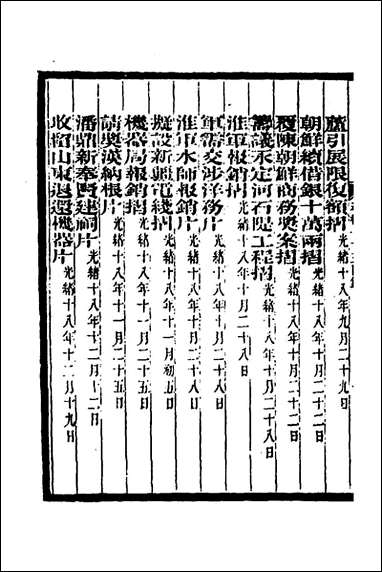 蘆引展限復額摺 光緒十八年九月二十九日
朝鮮續借銀十萬兩摺 光緒十八年十月二十二日
覆陳朝鮮商務獎案摺 光緒十八年十月二十二日
籌議永定河石隄工程摺 光緒十八年十月二十八日
淮軍報銷摺 光緒十八年十月二十八日
軍需交涉洋務片 光緒十八年十月二十八日
淮軍水師報銷片 光緒十八年十月二十八日
擬設新 電綫摺 光緒十八年十一月初五日
機器局報銷摺 光緒十八年十一月二十五日
請獎漢納根片 光緒十八年十一月二十五日
潘鼎新奉賢建祠片 光緒十八年十二月十二日
收留山東退還機器片 光緒十八年十二月十九日